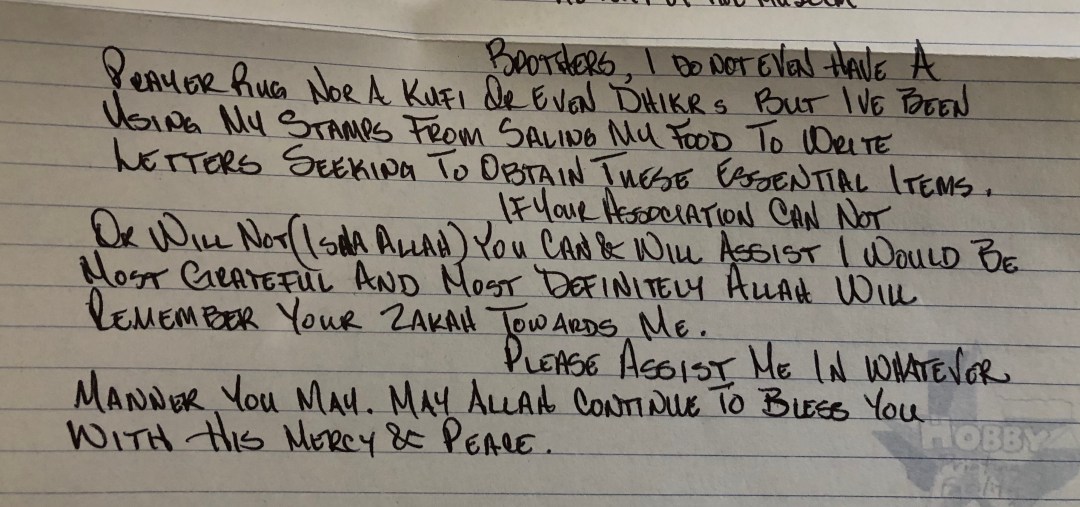 BROTHERS, I DO NOT EVEN HAVE A
PRAYER RUG NOR A KUFI OR EVEN DHIKRS BUT I'VE BEEN
USING MY STAMPS FROM SALING MY FOOD TO WRITE
LETTERS SEEKING TO OBTAIN THESE ESSENTIAL ITEMS.
IF YOUR ASSOCIATION CAN NOT
OR WILL NOT (ISHA ALLAH) YOU CAN & WILL ASSIST I WOULD BE
MOST GRATEFUL AND MOST DEFINITELY ALLAH WILL
REMEMBER YOUR ZAKAH TOWARDS ME.
PLEASE ASSIST ME IN WHATEVER
MANNER YOU MAY. MAY ALLAH CONTINUE TO BLESS YOU
WITH HIS MERCY & PEACE.
HOBBY